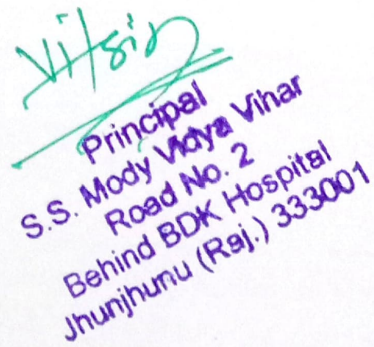 Principal
S.S. Mody Vidya Vihar
Road No. 2
Behind BDK Hospital
Jhunjhunu (Raj.) 333001